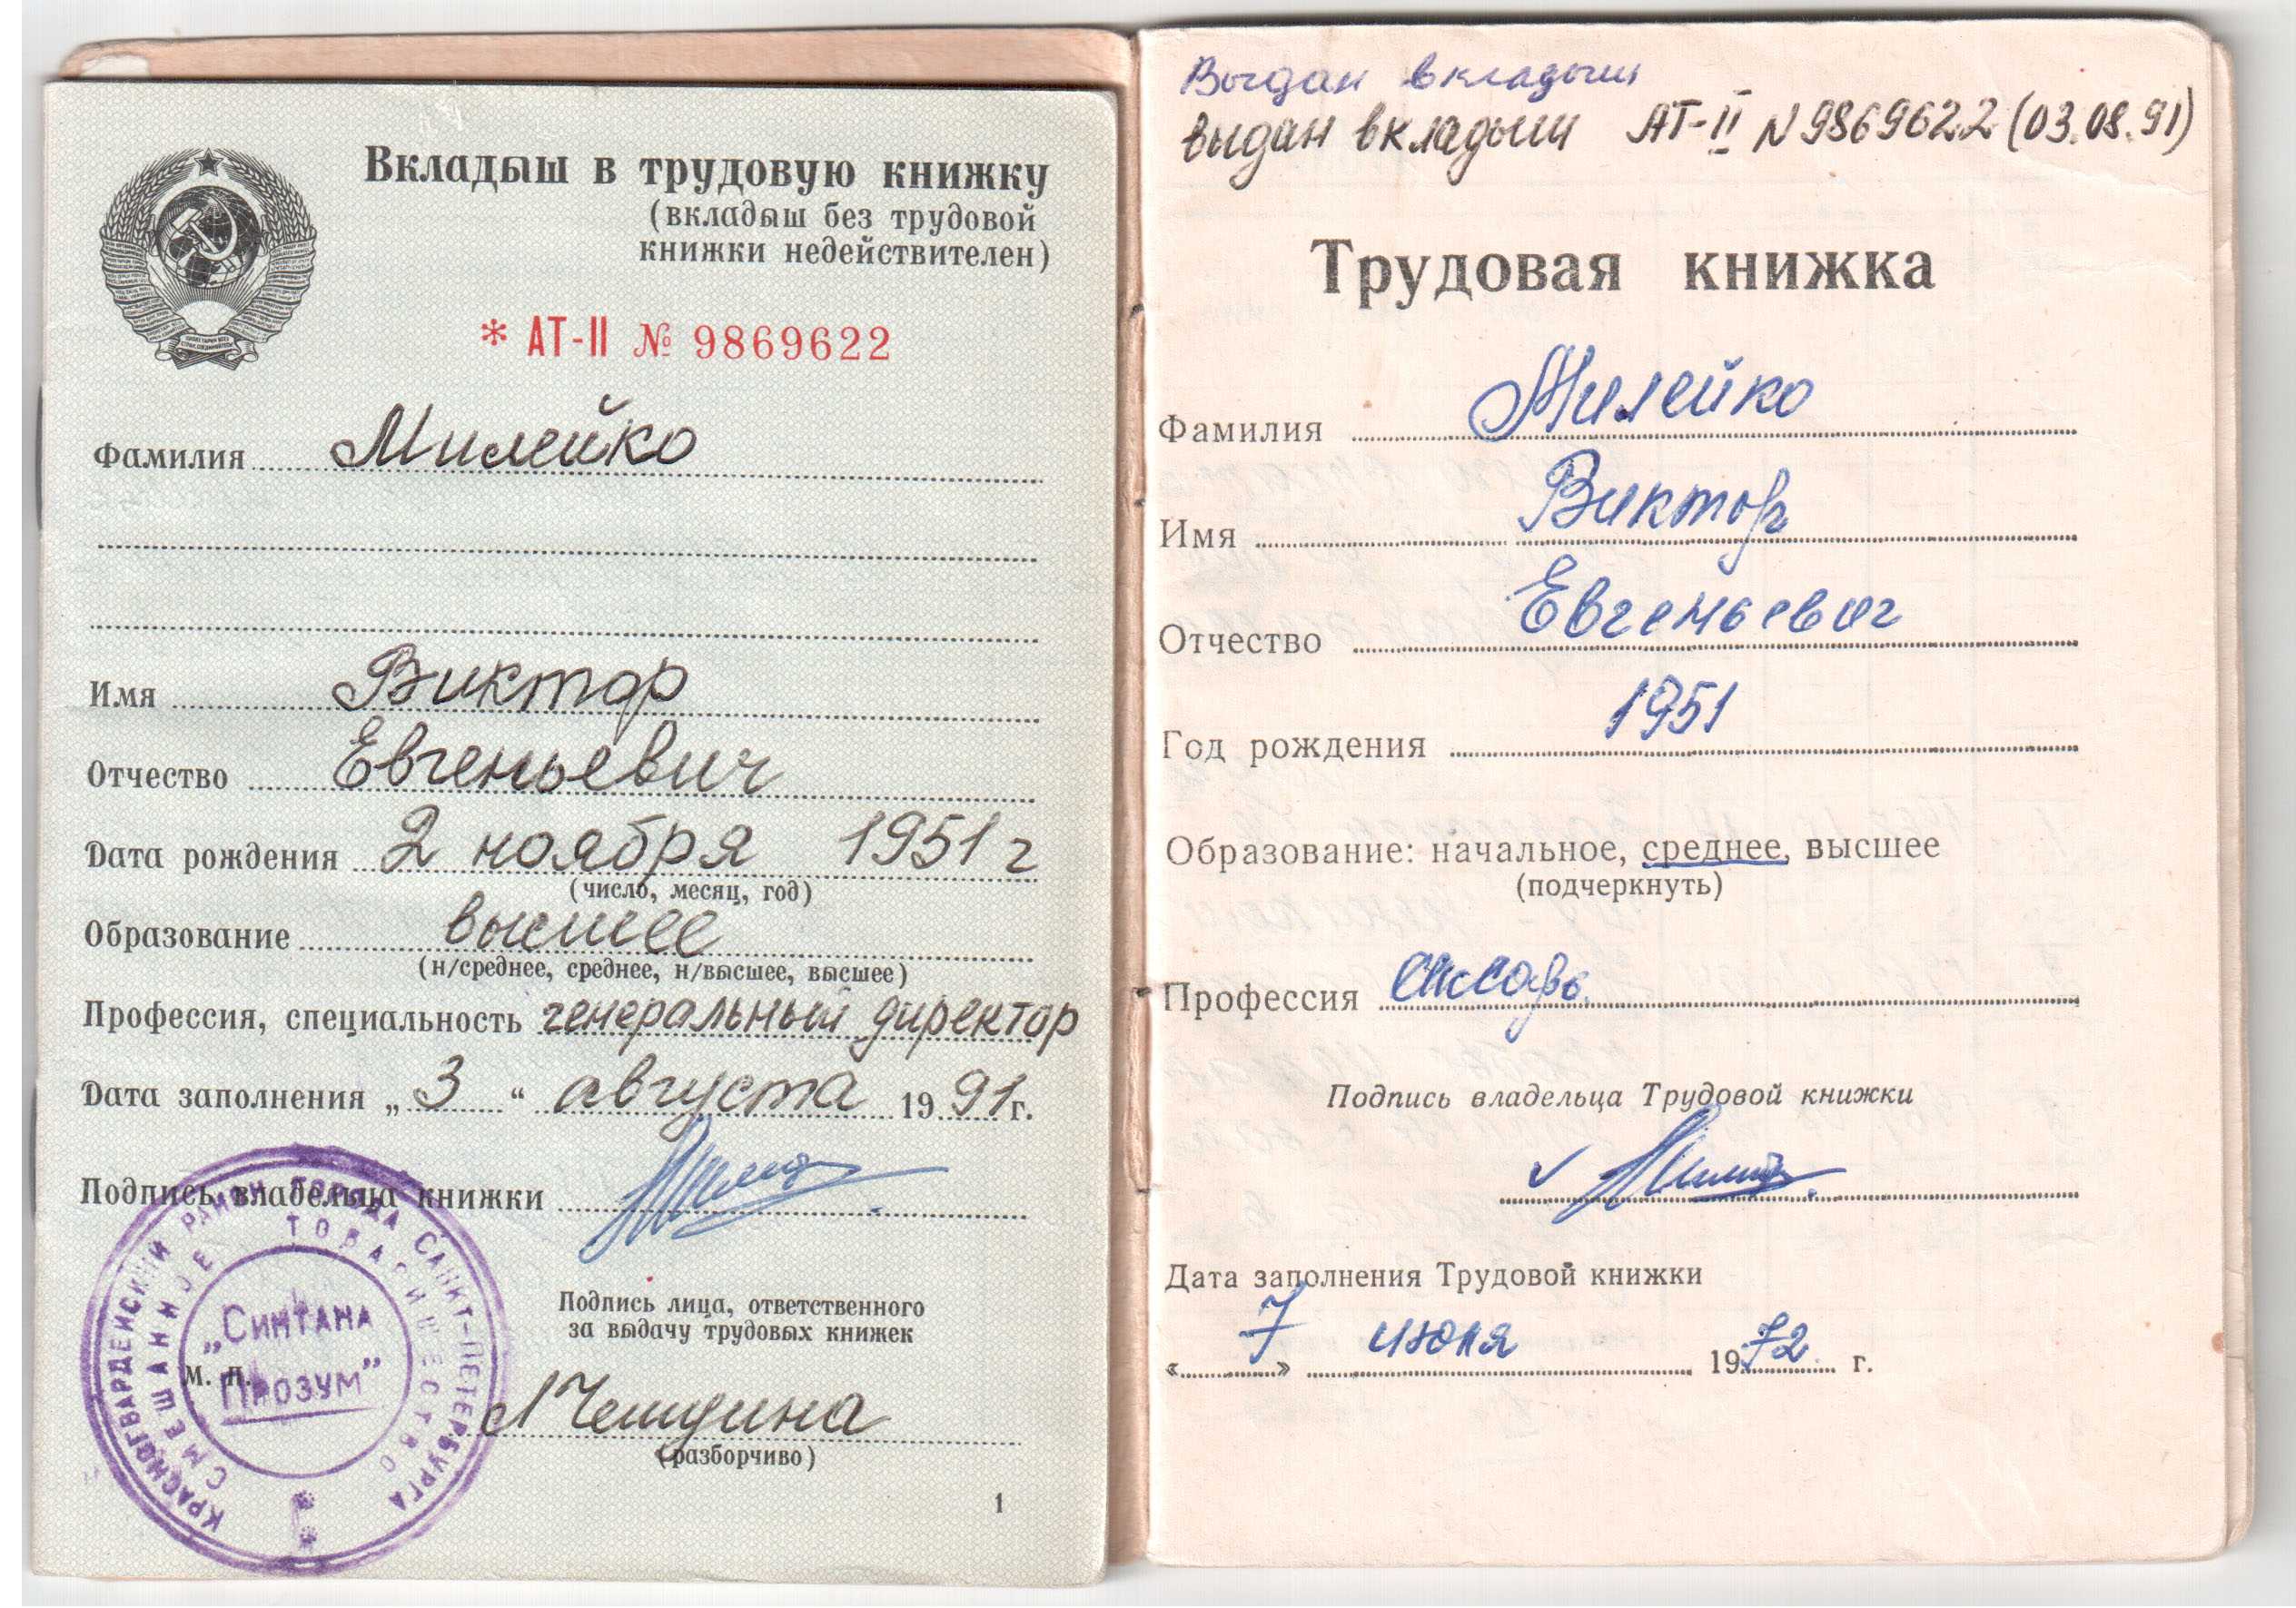 Вкладыш в трудовую книжку
(вкладыш без трудовой
книжки недействителен)
* АТ-II № 9869622
Фамилия Милейко
Имя Виктор
Отчество Евгеньевич
Дата рождения 2 ноября 1951 г
(число, месяц, год)
Образование высшее
(н/среднее, среднее, н/высшее, высшее)
Профессия, специальность генеральный директор
Дата заполнения „ 3 “ августа 19 91 г.
Подпись владельца книжки
Подпись лица, ответственного
за выдачу трудовых книжек
(разборчиво)
М. П.
КРАСНОГВАРДЕЙСКИЙ РАЙОН ГОРОДА САНКТ-ПЕТЕРБУРГА
СМЕШАННОЕ ТОВАРИЩЕСТВО
„СИНТАНА
ПРОЗУМ”
1
Выдан вкладыш
выдан вкладыш АТ-II N 9869622 (03.08.91)
Трудовая книжка
Фамилия Милейко
Имя Виктор
Отчество Евгеньевич
Год рождения 1951
Образование: начальное, среднее, высшее
(подчеркнуть)
Профессия слесарь
Подпись владельца Трудовой книжки
Дата заполнения Трудовой книжки
« 7 » июня 19 72 г.